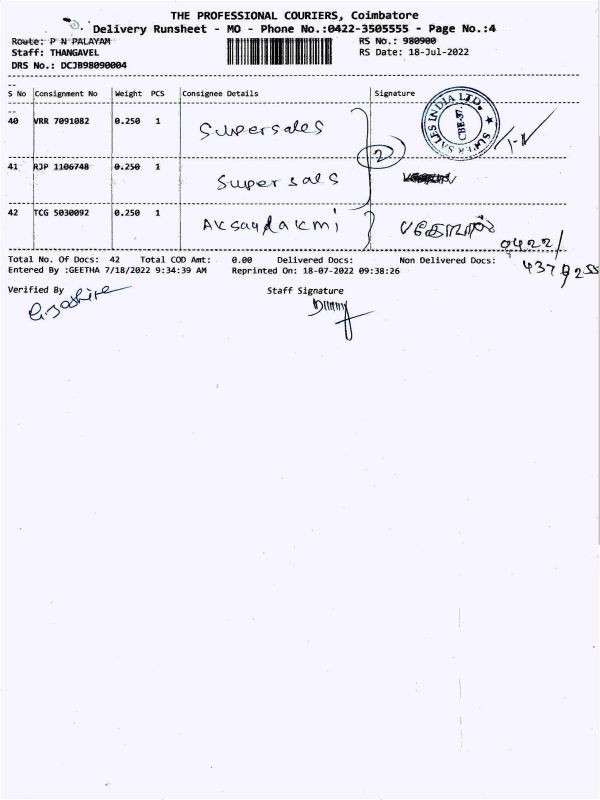 THE PROFESSIONAL COURIERS, Coimbatore
Delivery Runsheet - MO - Phone No.:0422-3505555 - Page No.:4
Route: P N PALAYAM
RS No.: 980900
Staff: THANGAVEL
RS Date: 18-Jul-2022
DRS No.: DCJB98090004
S No Consignment No Weight PCS Consignee Details Signature
40 VRR 7091082 0.250 1 Supersales
SUPER SALES INDIA LTD. CBE-37
2
41 RJP 1106748 0.250 1 Super sals
42 TCG 5030092 0.250 1
0422/
Total No. Of Docs: 42 Total COD Amt: 0.00 Delivered Docs: Non Delivered Docs:
Entered By :GEETHA 7/18/2022 9:34:39 AM Reprinted On: 18-07-2022 09:38:26
Verified By Staff Signature